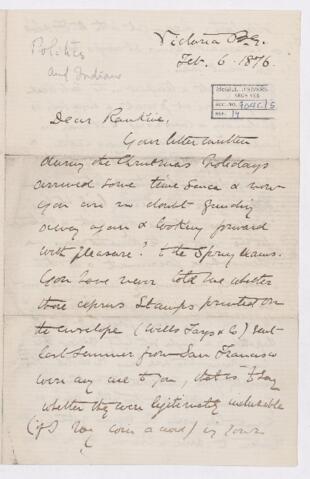 Politics
and Indians
Victoria B.C.
Feb. 6. 1876.
McGILL UNIVERSITY
ARCHIVES
ACC. NO.
REF.
Dear Rankine,
Your letter written
during the Christmas holidays
arrived some time since & now
you are no doubt grinding
away again & looking forward
with pleasure? to the Spring exams.
You have never told me whether
those express stamps printed on
the envelope (Wells Fargo & Co) sent
last summer from San Francisco
were any use to you, that is to say
whether they were legitimately includable
(if I may coin a word) in your